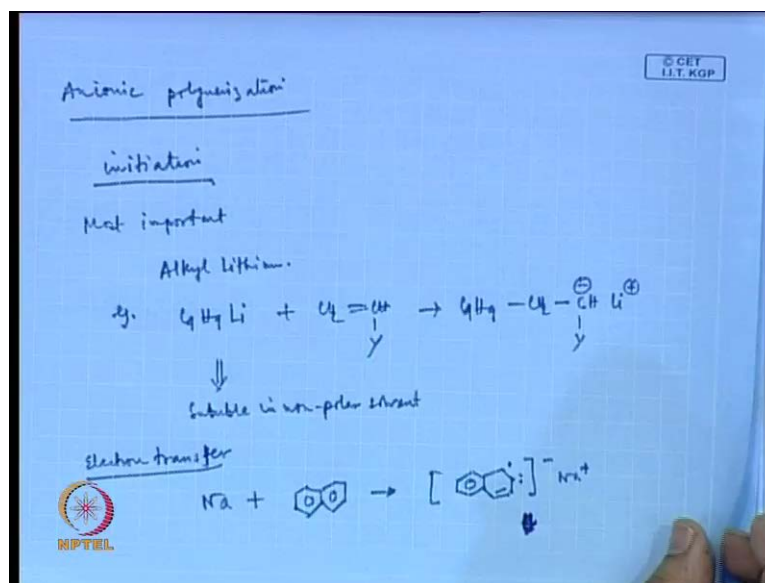 © CET
I.I.T. KGP
Anionic polymerization
initiation
Most important
Alkyl Lithium.
eg. C4H9Li + CH2=CH → C4H9–CH2–CH Li
⊖ ⊕
Y Y
⇓
Soluble in non-polar solvent
Electron transfer
Na + → [ : ]⁻ Na⁺
NPTEL